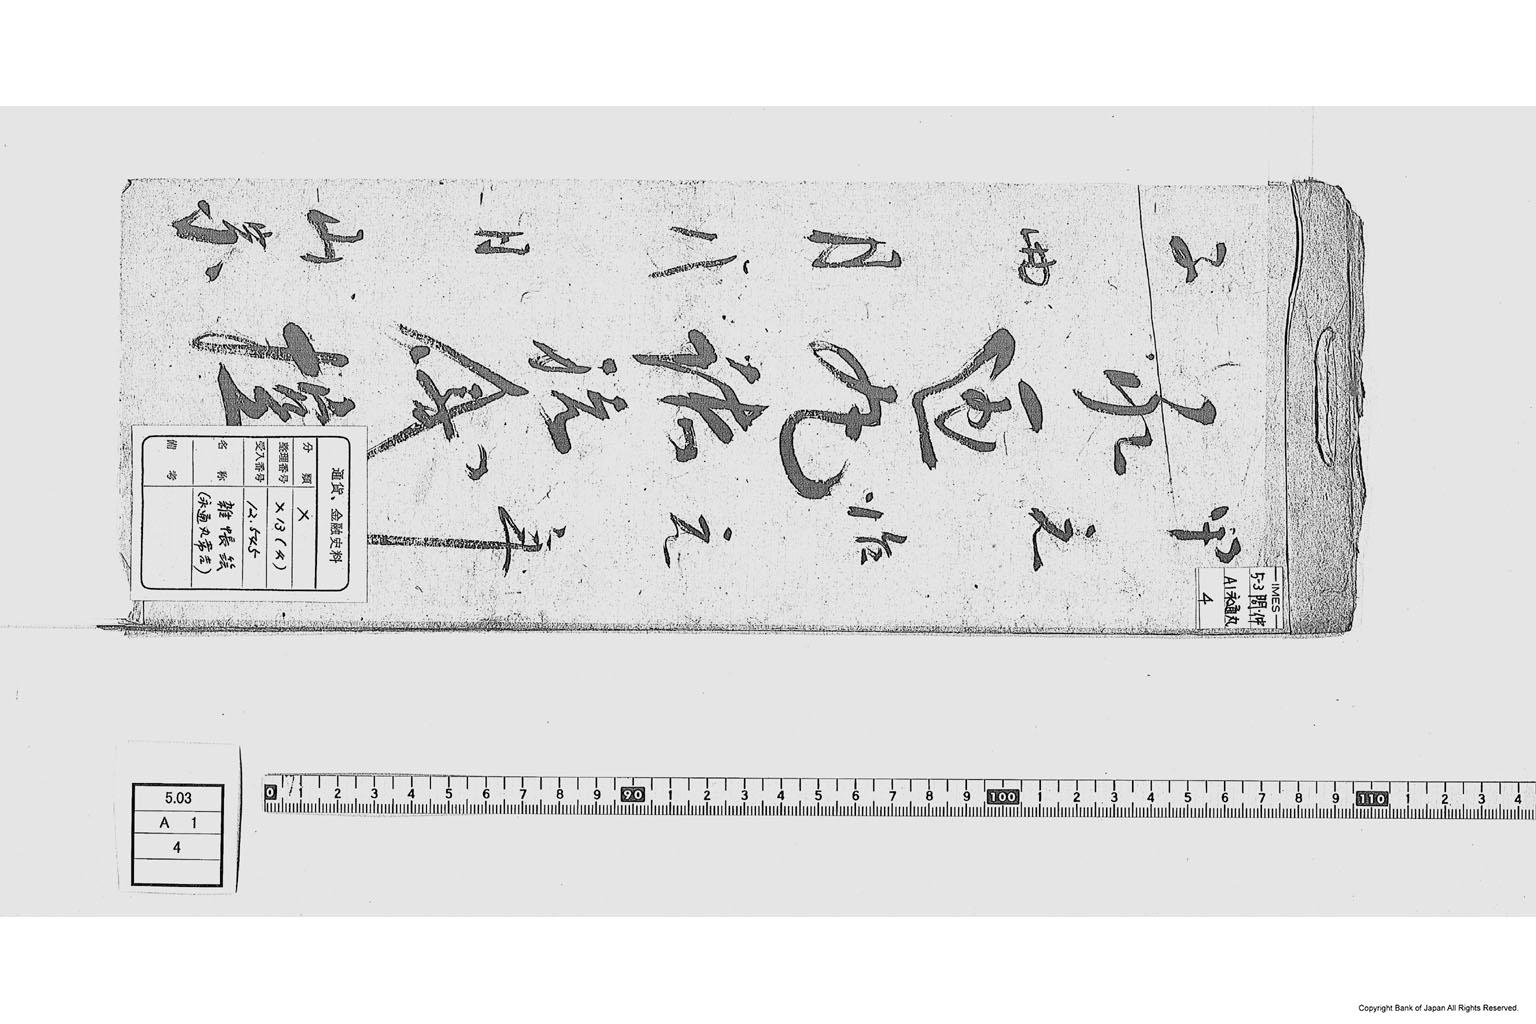 甲
元治元年
永通丸諸
子
四月八日
山
通貨、金融史料
分類 X
整理番号 X13(4)
受入番号 12.545
名称 雑帳綴
(永通丸
備考
IMES
5-3 間・仲
A1永通丸
4
5.03
A 1
4
0 1 2 3 4 5 6 7 8 9 90 1 2 3 4 5 6 7 8 9 100 1 2 3 4 5 6 7 8 9 110 1 2 3 4
Copyright Bank of Japan All Rights Reserved.